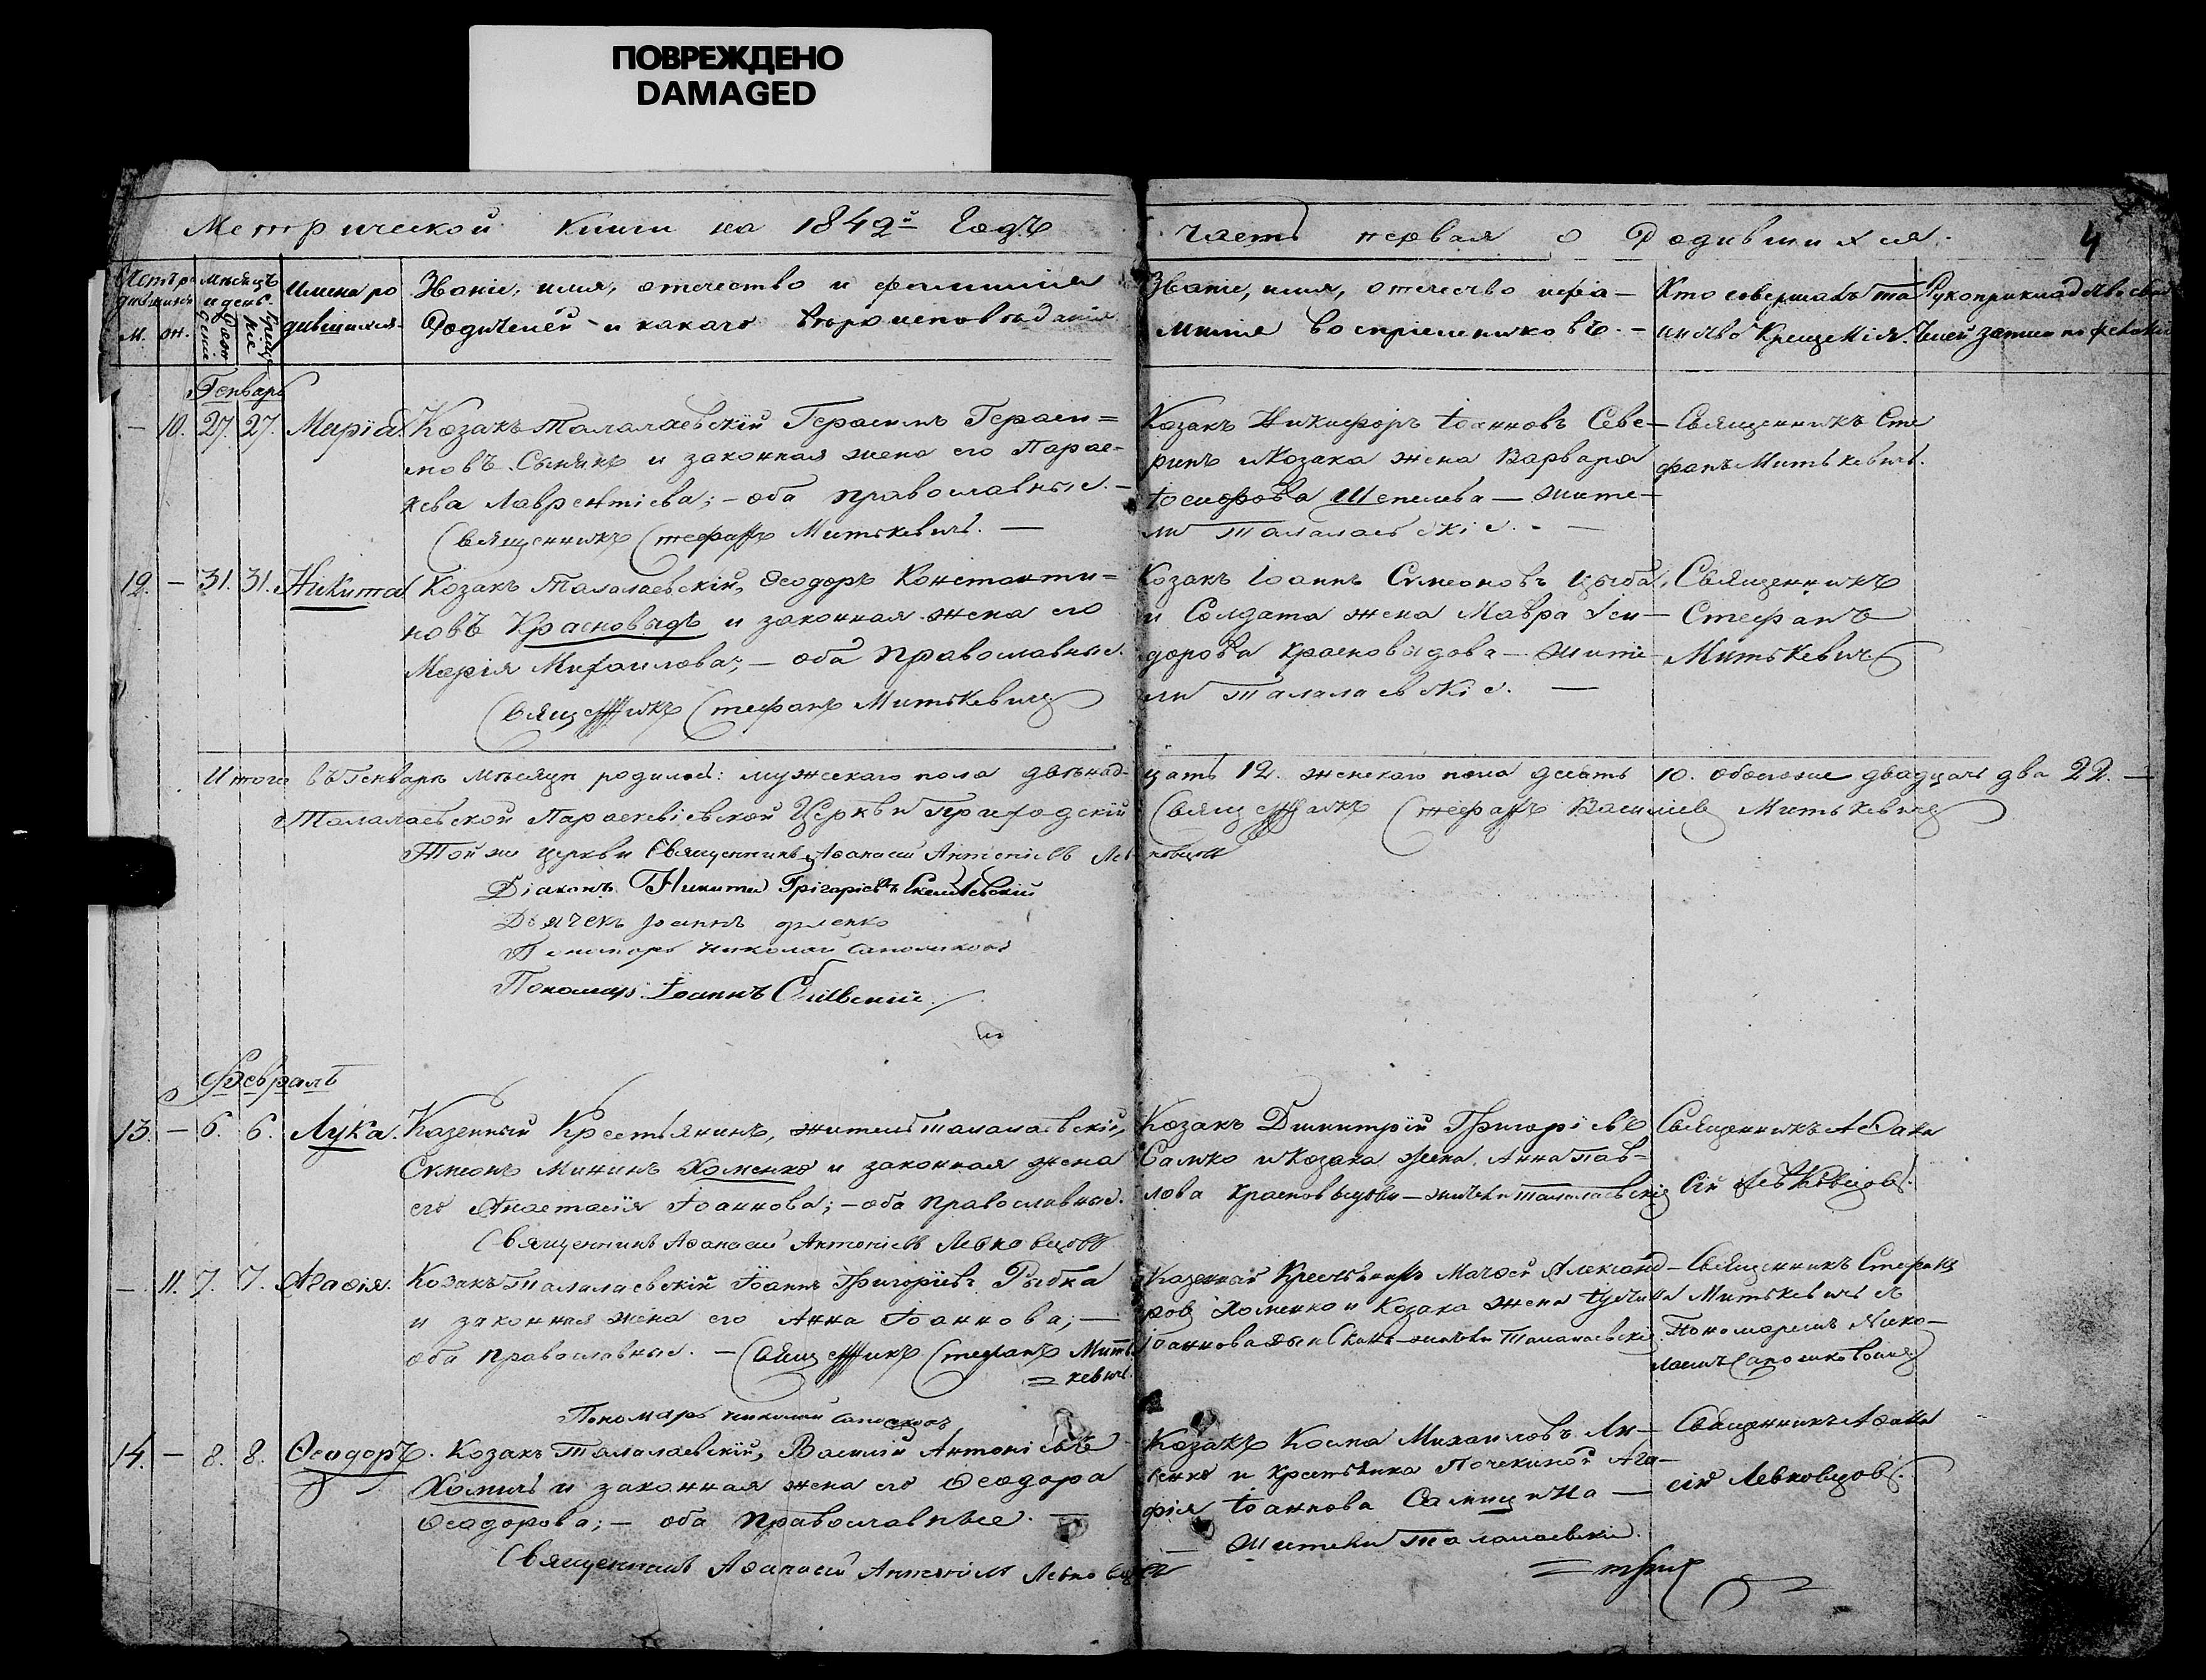 ПОВРЕЖДЕНО
DAMAGED
Метрической Книги на 1842й Годъ
часть первая о Родившихся.
4
М. Ж.
Имена ро
дившихся.
Званіе, имя, отечество и фамилія
Родителей и какаго вѣроисповѣданія
Званіе, имя, отечество и фа–
милія воспріемниковъ. –
Кто совершалъ та
инство Крещенія.
Генварь
– 10. 27. 27. Марія.
Козакъ Талалаевскій Герасимъ Гераси=
мовъ и законная жена его Парас–
кева Лаврентіева; – оба православные. –
Священникъ Стефанъ Митькевичъ. –
Козакъ Никифоръ Іоанновъ Севе–
ринъ и Козака жена Варвара
Шепелева – жите–
ли Талалаевскіе. –
Священникъ Сте
фанъ Митькевичъ.
12. – 31. 31. Никита
Козакъ Талалаевскій, Ѳеодоръ Константи=
новъ Красновидъ и законная жена его
Марія Михаилова; – оба Православные.
Священникъ Стефанъ Митькевичъ
Козакъ Іоаннъ Сѵмеоновъ Цыба,
и Солдата жена Мавра Іси–
дорова Красновидова – жите–
ли Талалаевскіе. –
Священникъ
Стефанъ
Митькевичъ
Итого въ Генварѣ мѣсяцѣ родилось: мужескаго пола двѣнад–
цать 12. женскаго пола десять 10. обоего двадцать два 22. –
Талалаевской Параскевіевской Церкви Приходскій
Священникъ Стефанъ Василіевъ Митькевичъ
Той же церкви Священникъ Аѳанасій Антоніевъ Лев–
ковцовъ
Діаконъ Никита Григоріевъ
Дьячекъ Іоаннъ
Пономарь Николай Сапожковъ
Пономарь Іоаннъ
Февраль
13. – 6. 6. Лука.
Казенный Крестьянинъ, житель талалаевскій,
Сѵмеонъ Мининъ Хоменко и законная жена
его Анастасія Іоаннова; – оба православные.
Священникъ Аѳанасій Антоніевъ Левковцовъ
Козакъ Димитрій Григоріевъ
Салко и Козака жена Анна Пав–
лова Красновидова – жители талалаевскіе
Священникъ Аѳана
сій Левковцовъ.
– 11. 7. 7. Агафія.
Козакъ Талалаевскій Іоаннъ Григоріевъ Рыбка
и законная жена его Анна Іоаннова; –
оба православные. – Священникъ Стефанъ Мить
= кевичъ.
Пономарь Николай Сапожковъ
Казенный Крестьянинъ Матѳей Александ–
ровъ Хоменко и Козака жена
Іоаннова жители Талалаевскіе
Священникъ Стефанъ
Митькевичъ съ
Пономаремъ Нико–
лаемъ Сапожковымъ
14. – 8. 8. Ѳеодоръ.
Козакъ Талалаевскій, Василій Антоніевъ
Хомичъ и законная жена его Ѳеодора
Ѳеодорова; – оба Православные. –
Священникъ Аѳанасій Антоніевъ Левковцовъ
Козакъ Косма Михаиловъ Ли–
сенко и крестьянка Ага–
фія Іоаннова –
– Жители Талалаевскіе.
Священникъ Аѳана
сій Левковцовъ.